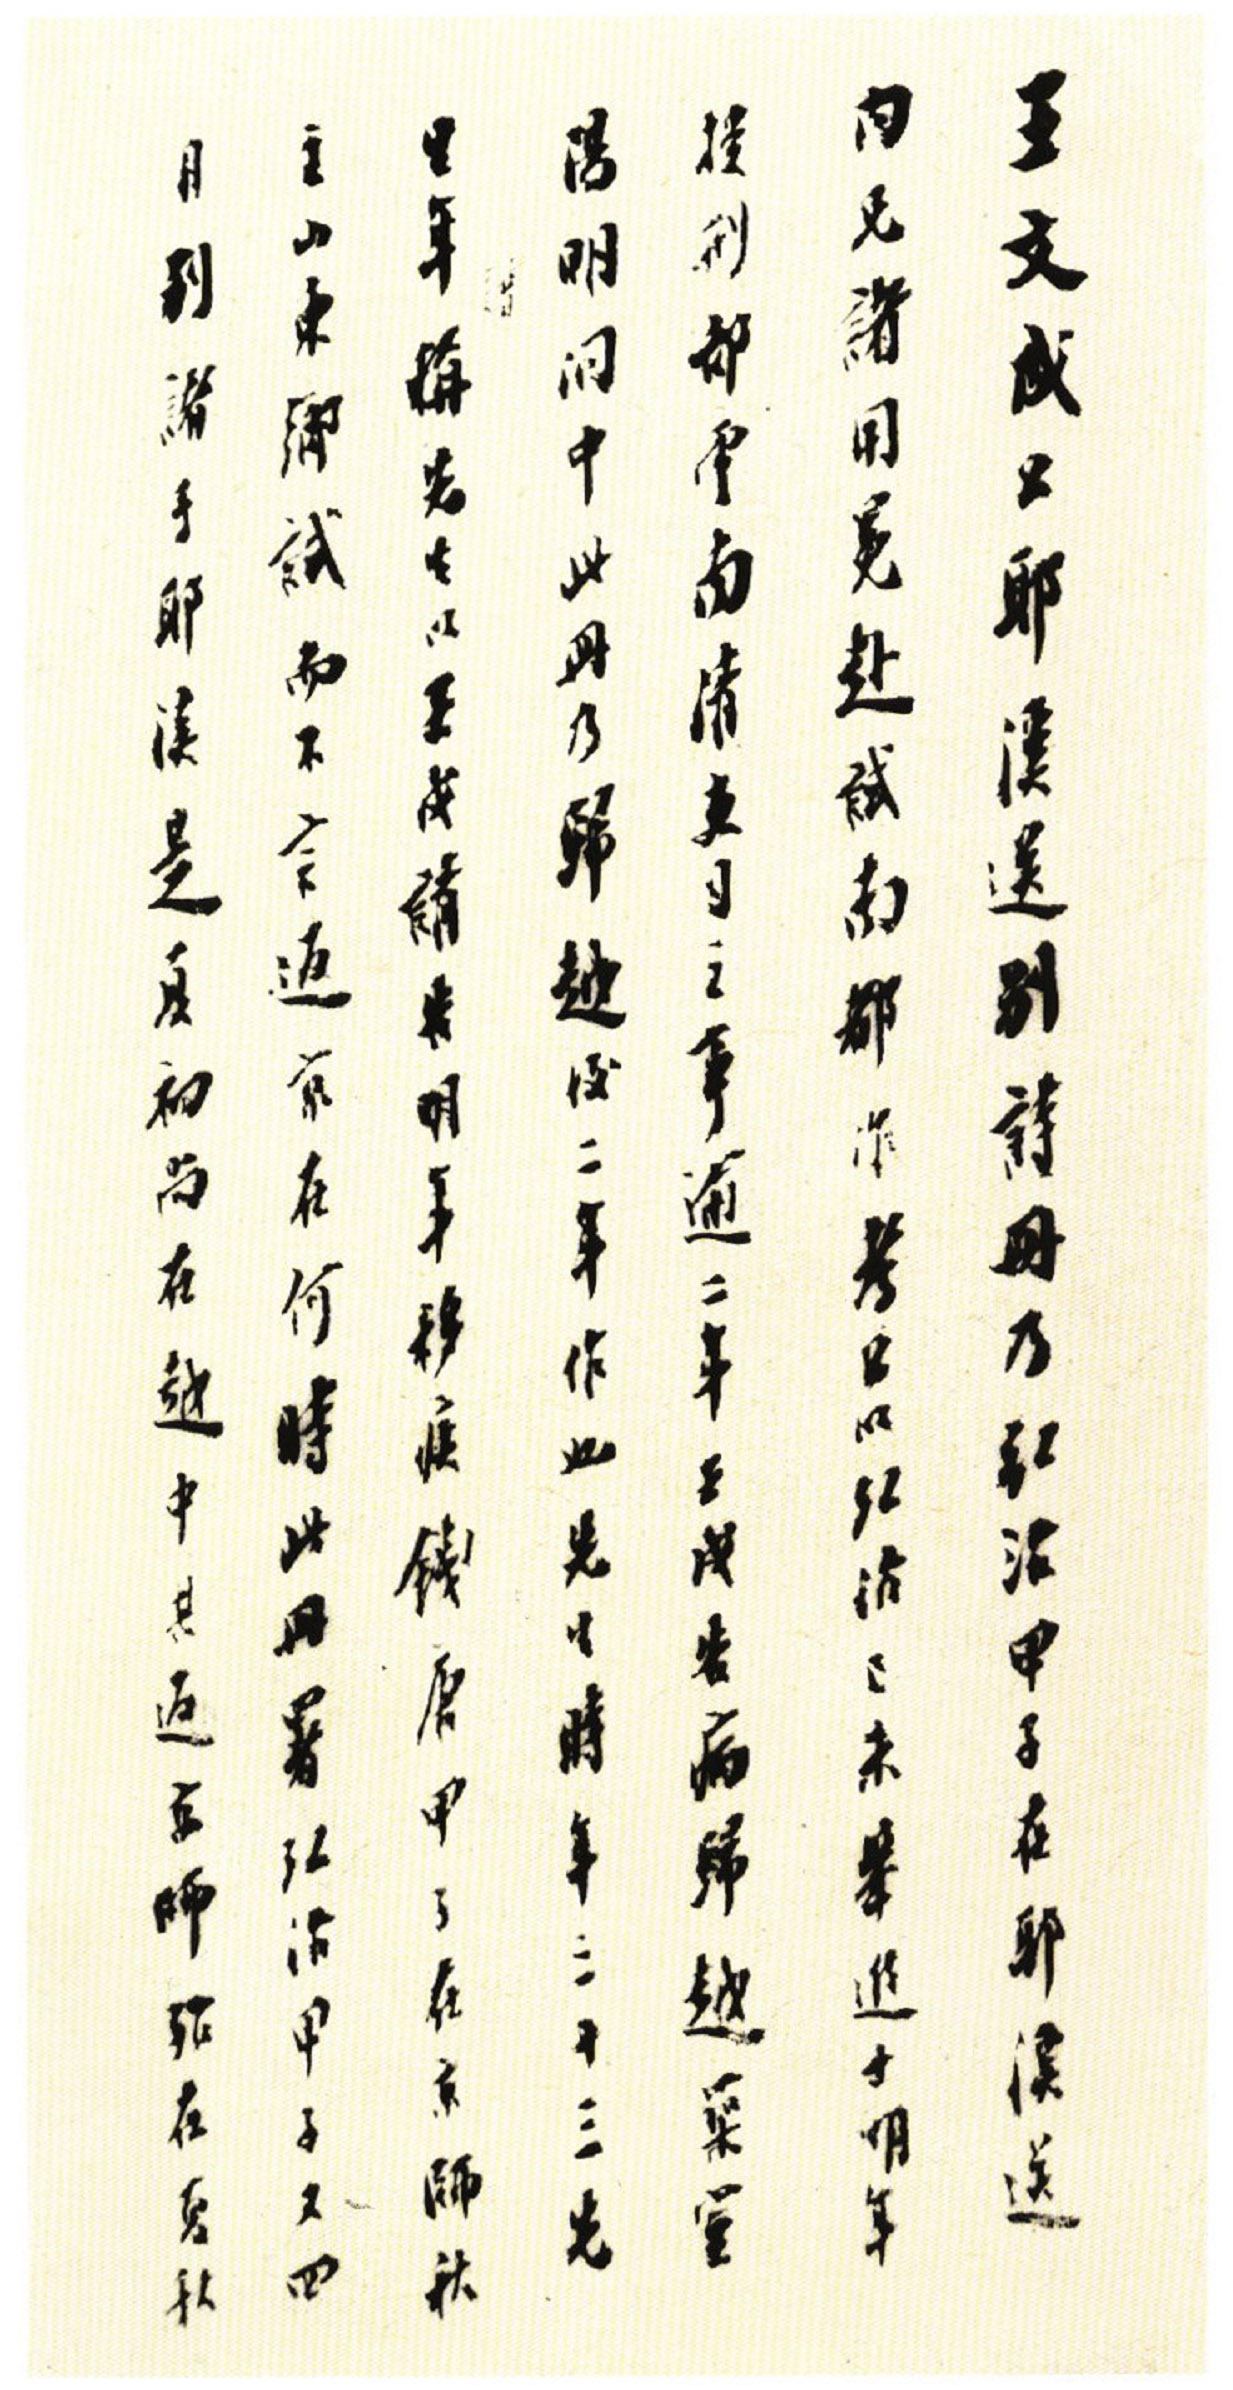 王文成公耶溪送別詩冊乃弘治甲子在耶溪送
內兄諸用冕赴試南都作考公以弘治己未舉進士明年
授刑部雲南清吏司主事逾二年壬戌告病歸越築室
陽明洞中此冊乃歸越後二年作也先生時年三十三先
生年譜先生以壬戌請告明年移疾錢唐甲子在京師秋
主山東鄉試而不言返京在何時此冊署弘治甲子又四
月別諸于耶溪是夏初尚在越中其返京師殆在夏秋